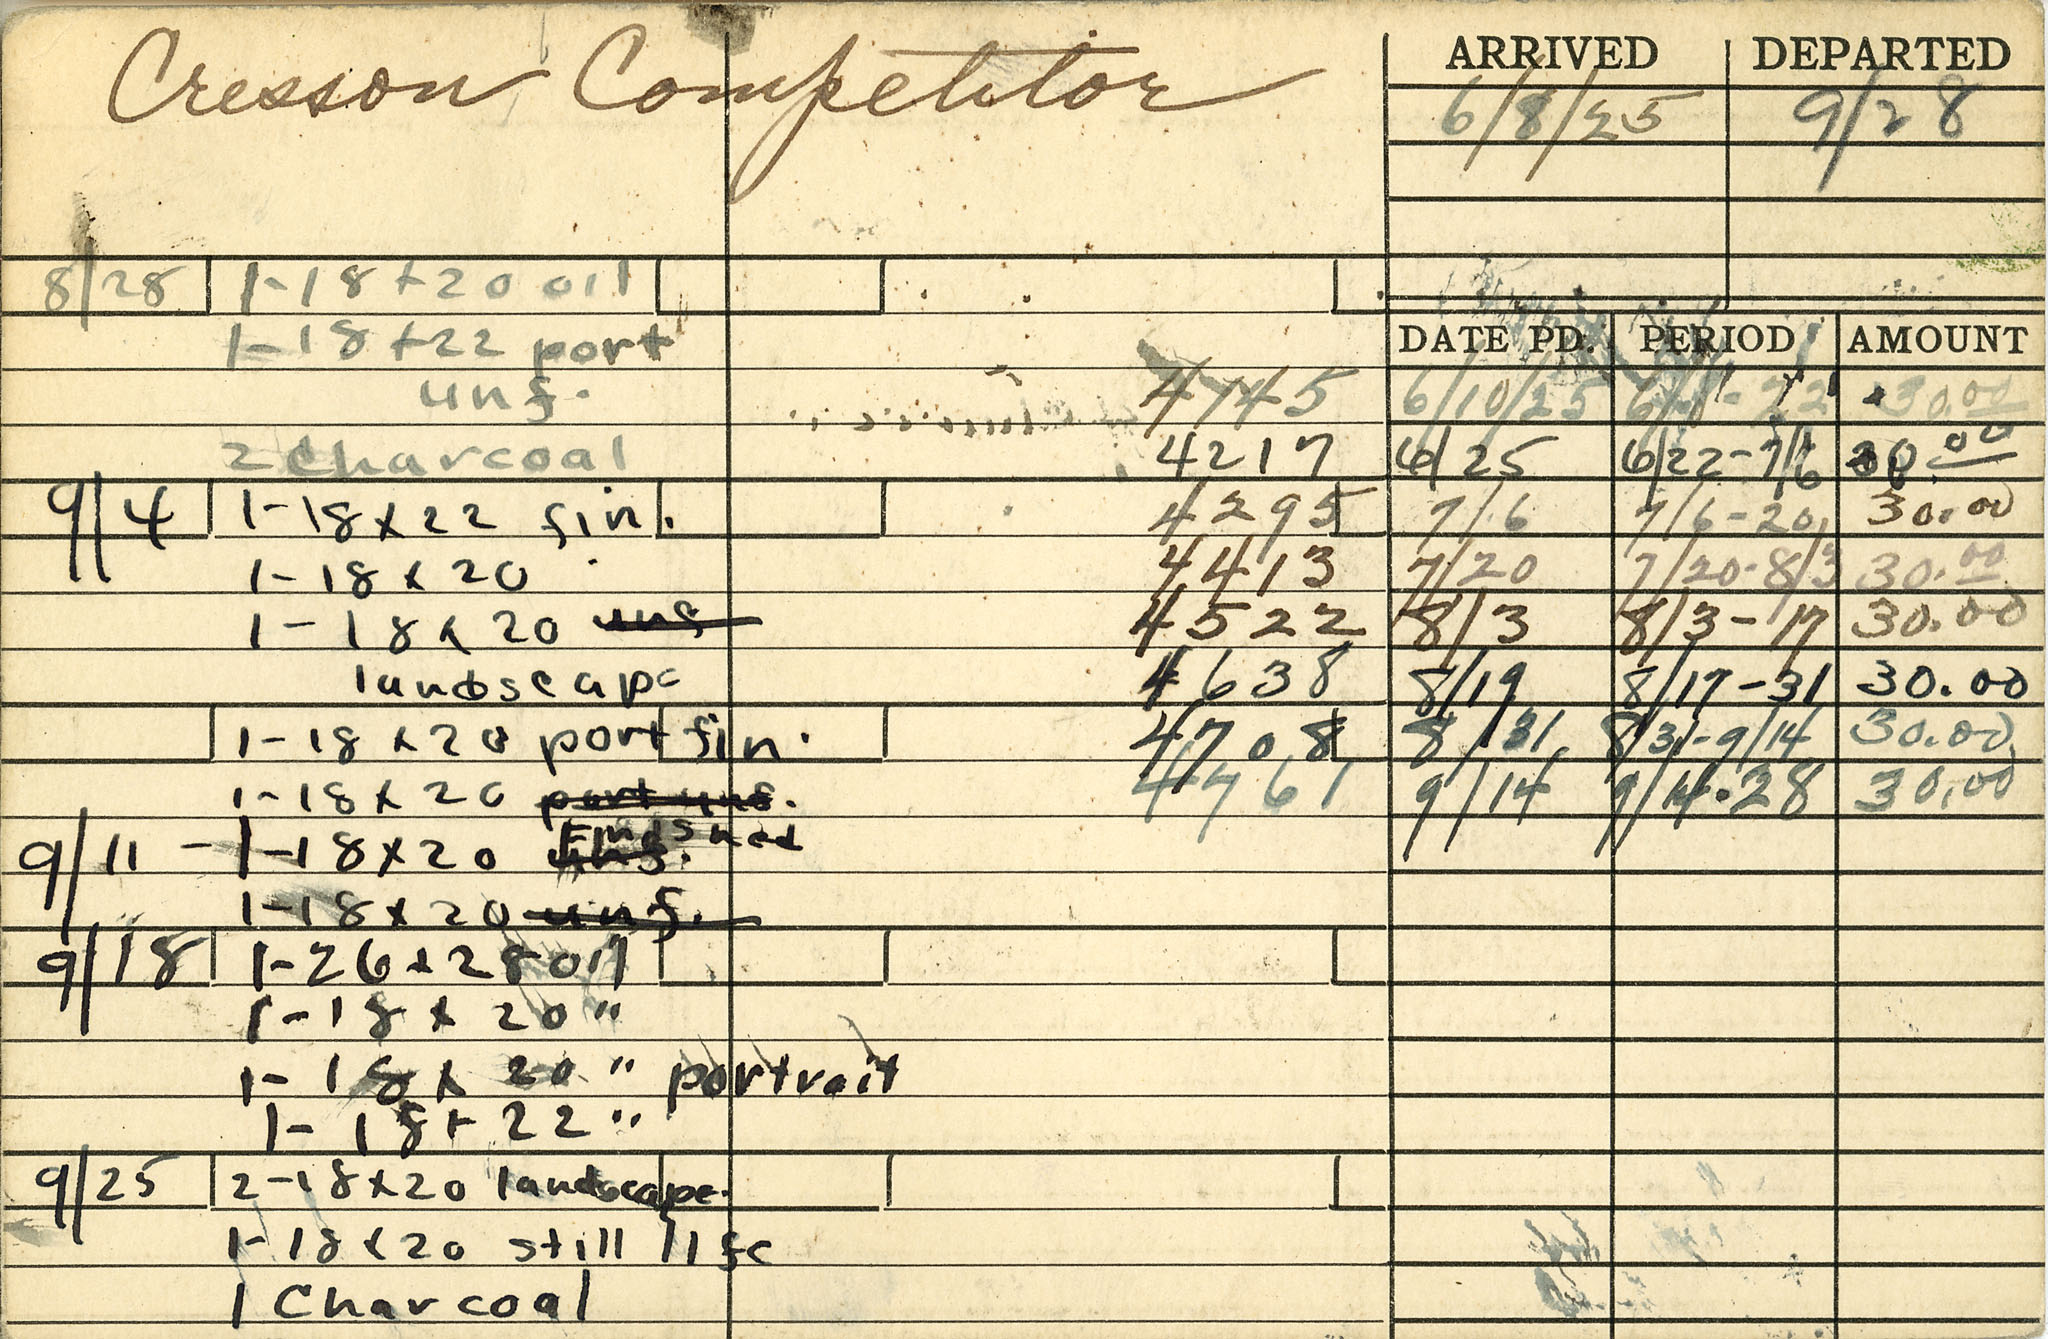 Cresson Competitor
ARRIVED DEPARTED
6/8/25 9/28
8/28 1-18+20 oil
1-18+22 port
unf.
2 charcoal
9/4 1-18x22 fin.
1-18x20
1-18x20 unf
landscape
1-18x20 port fin.
1-18x20 port unf.
9/11 - 1-18x20 unf. Finished
1-18x20 unf.
9/18 1-26x28 oil
1-18x20 "
1-18x20 " portrait
1-18+22 "
9/25 2-18x20 landscape.
1-18x20 still life
1 Charcoal
DATE PD. PERIOD AMOUNT
6/10/25 6/8-22 30.00
4217 6/25 6/22-7/6 30.00
4295 7/6 7/6-20 30.00
4413 7/20 7/20-8/3 30.00
4522 8/3 8/3-17 30.00
4638 8/19 8/17-31 30.00
4708 8/31 8/31-9/14 30.00
4761 9/14 9/14-28 30.00